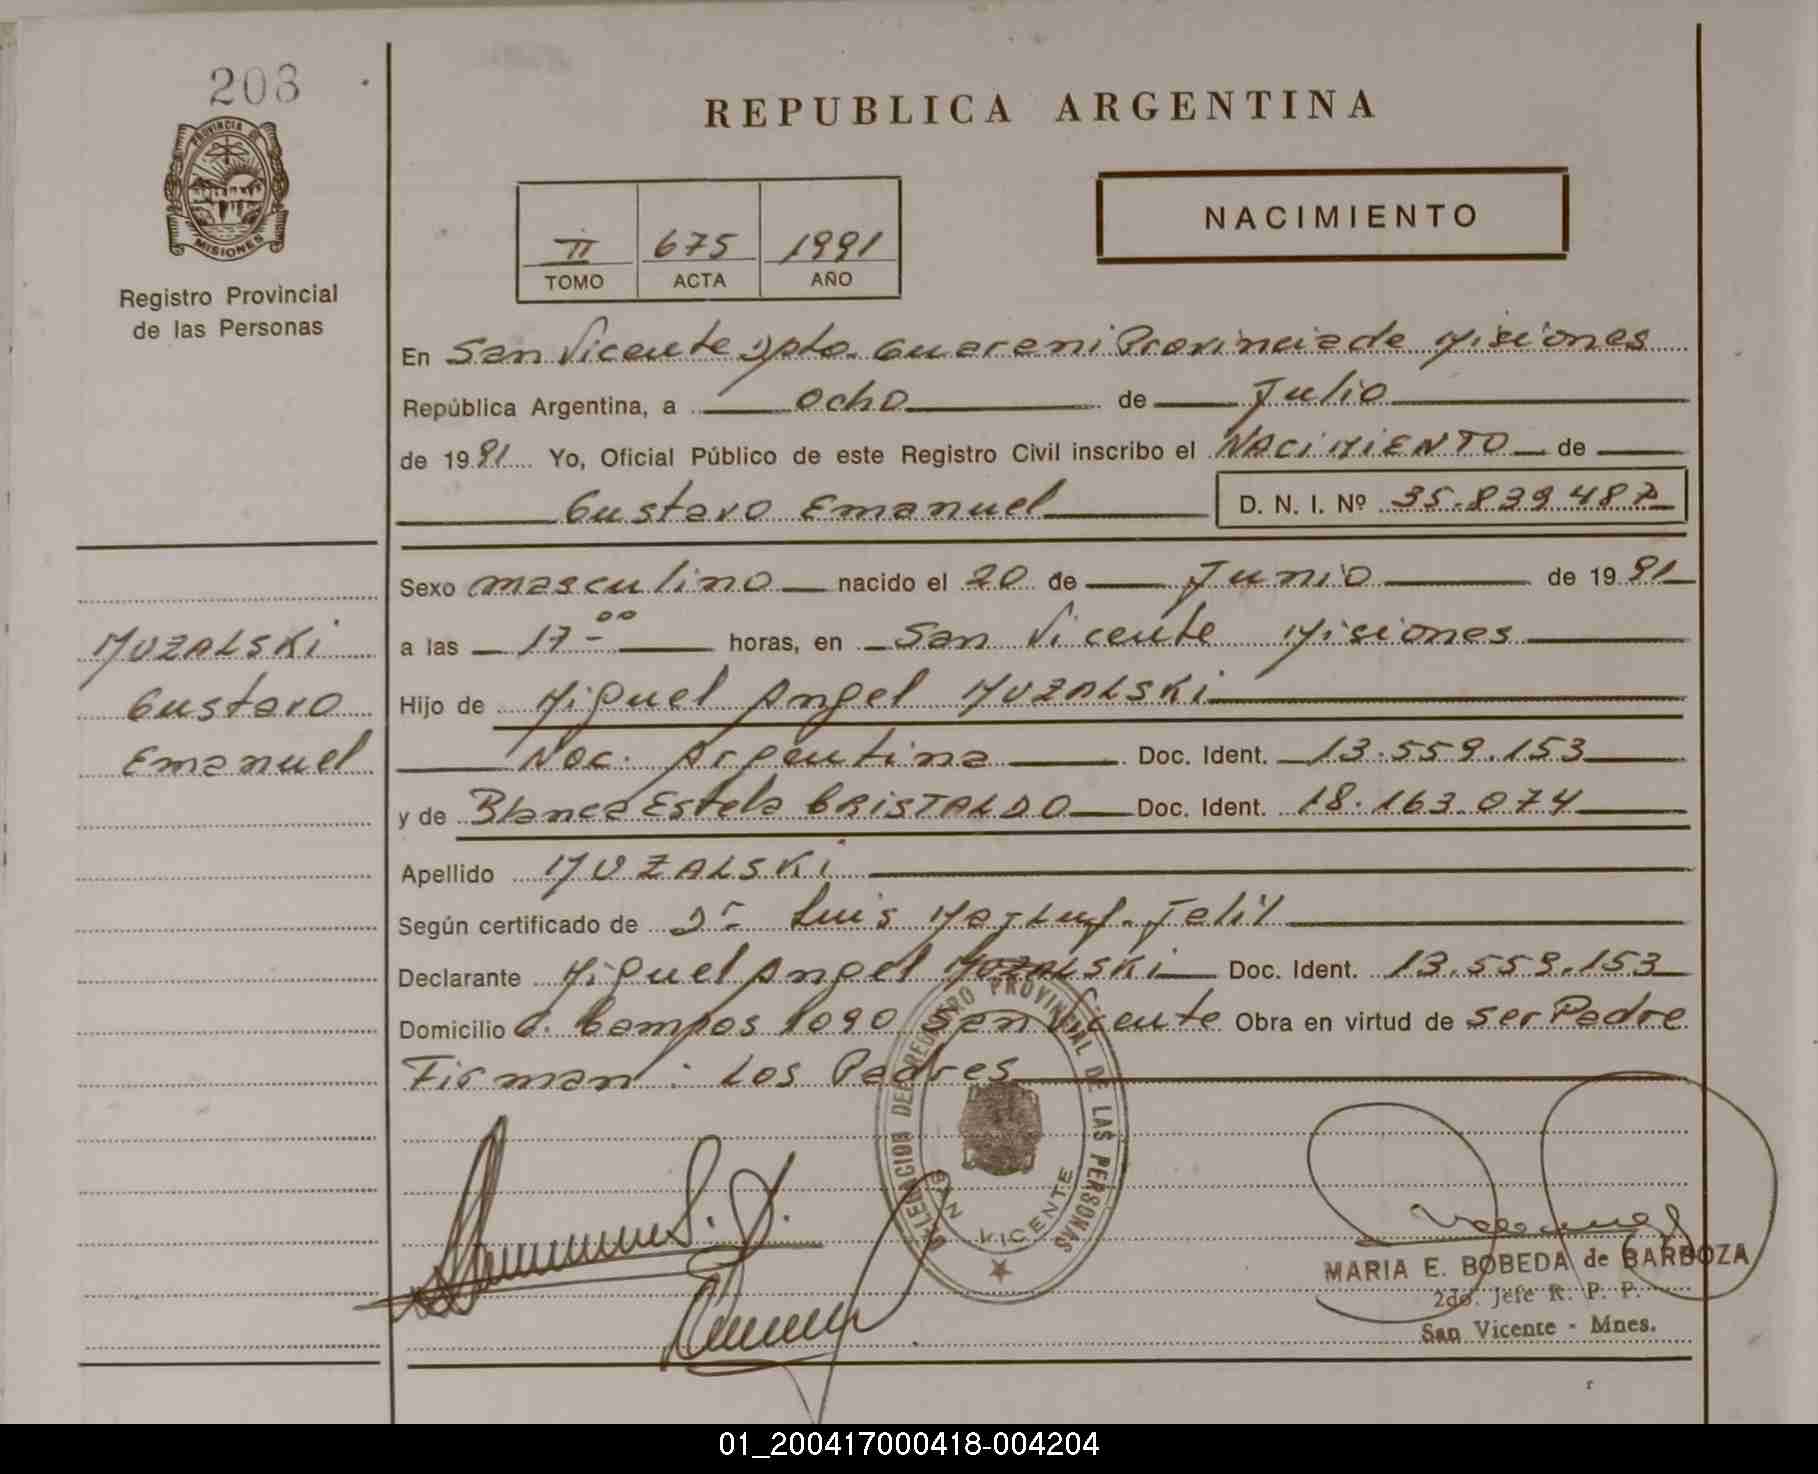 208
PROVINCIA DE
MISIONES
Registro Provincial
de las Personas
REPUBLICA ARGENTINA
II 675 1991
TOMO ACTA AÑO
NACIMIENTO
En San Vicente Dpto. Guarani Provincia de Misiones
República Argentina, a ocho de Julio
de 1991 Yo, Oficial Público de este Registro Civil inscribo el NACIMIENTO de
Gustavo Emanuel D. N. I. Nº 35.839.487
Sexo masculino nacido el 20 de Junio de 1991
a las 17-00 horas, en San Vicente Misiones
Hijo de Miguel Angel MUZALSKI
Nac. Argentina Doc. Ident. 13.559.153
y de Blanca Estela CRISTALDO Doc. Ident. 18.163.074
Apellido MUZALSKI
Según certificado de Dr Luis
Declarante Miguel Angel MUZALSKI Doc. Ident. 13.559.153
Domicilio C. Campos 1090 San Vicente Obra en virtud de ser Padre
Firman: Los Padres
MUZALSKI
Gustavo
Emanuel
DELEGACION DEL REGISTRO PROVINCIAL DE LAS PERSONAS
SAN VICENTE
MARIA E. BOBEDA de BARBOZA
2do. Jefe R. P. P.
San Vicente - Mnes.
01_200417000418-004204